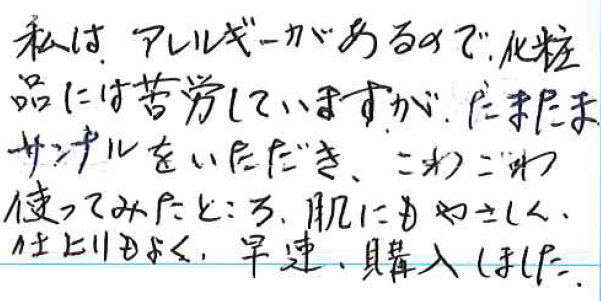 私は、アレルギーがあるので、化粧
品には苦労していますが、たまたま
サンプルをいただき、こわごわ
使ってみたところ、肌にもやさしく、
仕上りもよく、早速、購入しました。